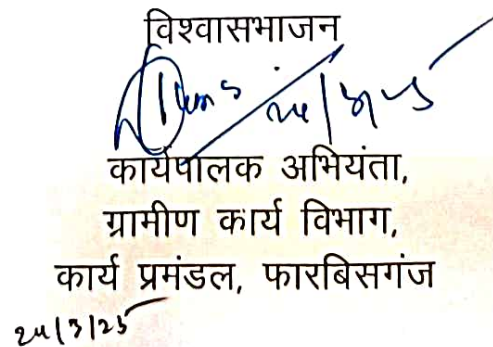 विश्वासभाजन
24/3/25
कार्यपालक अभियंता,
ग्रामीण कार्य विभाग,
कार्य प्रमंडल, फारबिसगंज
24/3/25